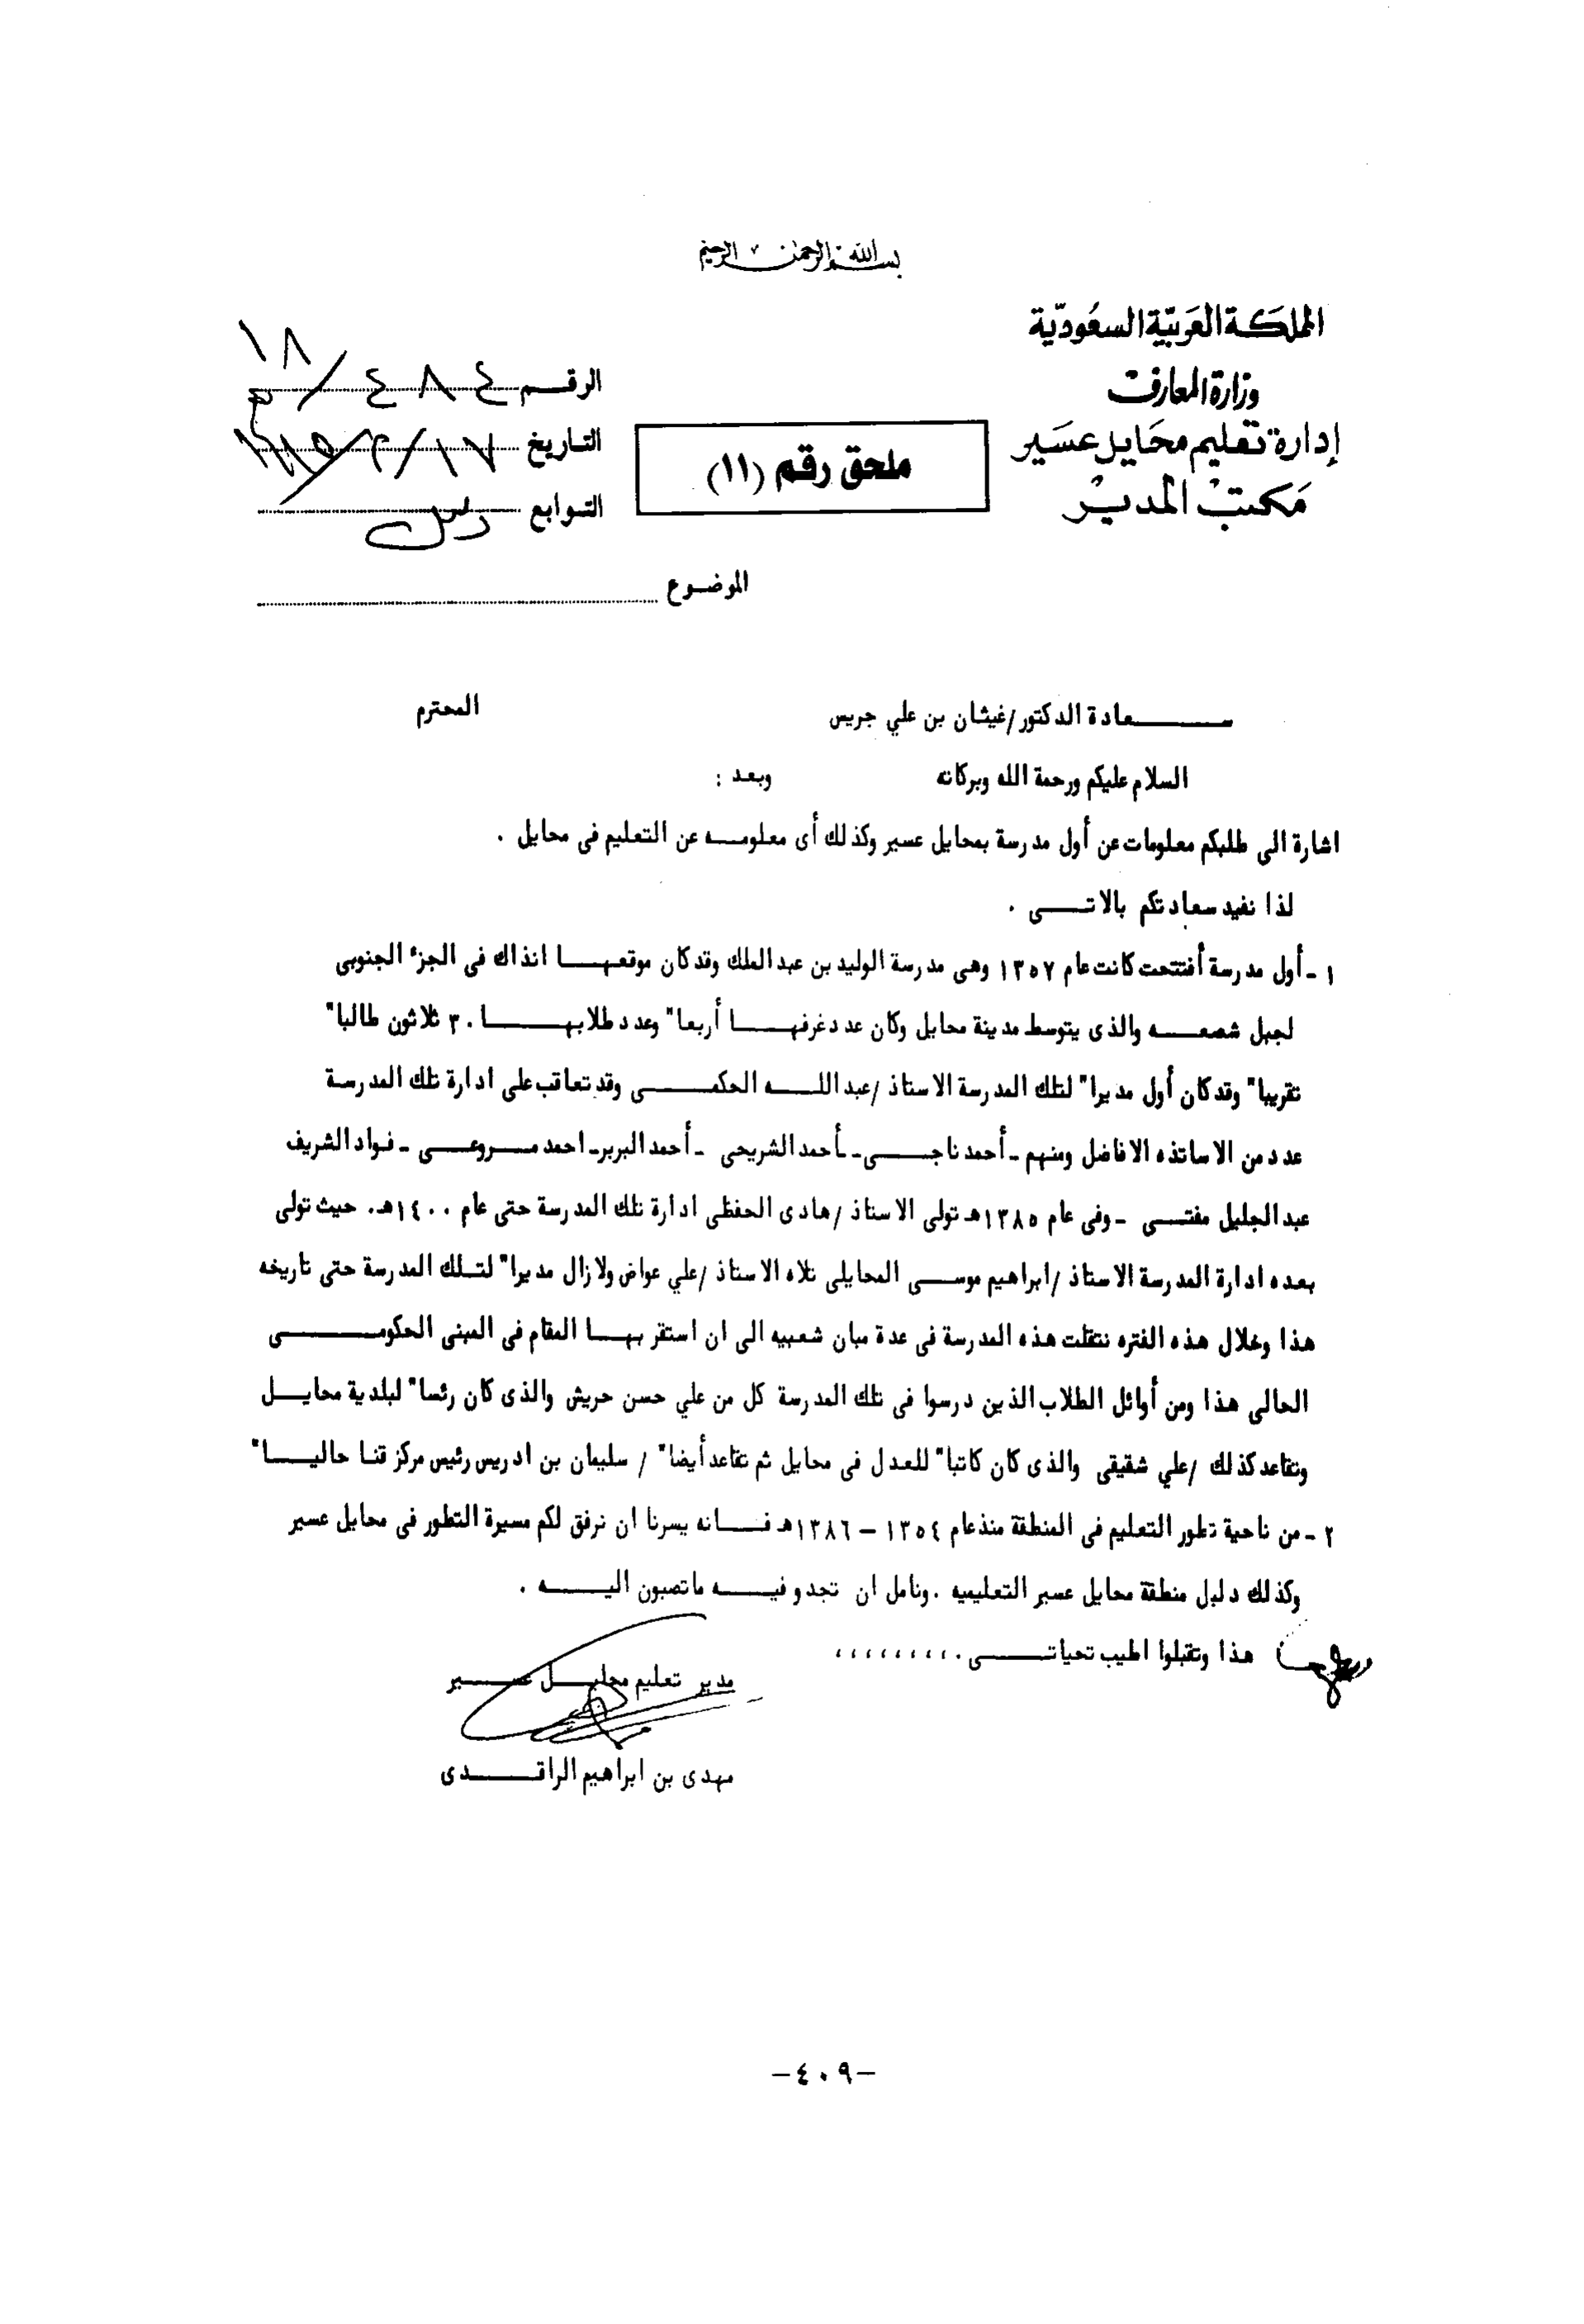 بسم الله الرحمن الرحيم
المملكة العربية السعودية
وزارة المعارف
إدارة تعليم محايل عسير
مكتب المدير
ملحق رقم (١١)
الرقم ٤٨٤/١٨
التاريخ ١٧/٢/
التوابع
الموضوع
سعادة الدكتور/غيثان بن علي جريس المحترم
السلام عليكم ورحمة الله وبركاته وبعد :
اشارة الى طلبكم معلومات عن أول مدرسة بمحايل عسير وكذلك أى معلومه عن التعليم فى محايل .
لذا نفيد سعادتكم بالاتى .
١ - أول مدرسة أفتتحت كانت عام ١٣٥٧ وهى مدرسة الوليد بن عبد الملك وقد كان موقعها انذاك فى الجزء الجنوبى
لجبل شصعه والذى يتوسط مدينة محايل وكان عدد غرفها أربعا" وعدد طلابها ٣٠ ثلاثون طالبا"
تقريبا" وقد كان أول مديرا" لتلك المدرسة الاستاذ /عبد الله الحكمى وقد تعاقب على ادارة تلك المدرسة
عدد من الاساتذه الافاضل ومنهم - أحمد ناجى - أحمد الشريحى - أحمد البربر- احمد مروعى - فواد الشريف
عبد الجليل مفتى - وفى عام ١٣٨٥هـ تولى الاستاذ /هادى الحفظى ادارة تلك المدرسة حتى عام ١٤٠٠هـ. حيث تولى
بعده ادارة المدرسة الاستاذ /ابراهيم موسى المحايلى تلاه الاستاذ /علي عواض ولازال مديرا" لتلك المدرسة حتى تاريخه
هذا وخلال هذه الفتره نتقلت هذه المدرسة فى عدة مبان شعبيه الى ان استقر بها المقام فى المبنى الحكومى
الحالى هذا ومن أوائل الطلاب الذين درسوا فى تلك المدرسة كل من علي حسن حريش والذى كان رئسا" لبلدية محايل
وتقاعد كذلك /علي شقيقى والذى كان كاتبا" للعدل فى محايل ثم تقاعد أيضا" / سليمان بن ادريس رئيس مركز قنا حاليا"
٢ - من ناحية تطور التعليم فى المنطقة منذ عام ١٣٥٤ - ١٣٨٦هـ فانه يسرنا ان نرفق لكم مسيرة التطور فى محايل عسير
وكذلك دليل منطقة محايل عسير التعليميه . ونامل ان تجدو فيه ماتصبون اليه .
هذا وتقبلوا اطيب تحياتى . ، ، ، ، ، ، ، ، ،
مدير تعليم محايل عسير
مهدى بن ابراهيم الراقدى
-٤٠٩-